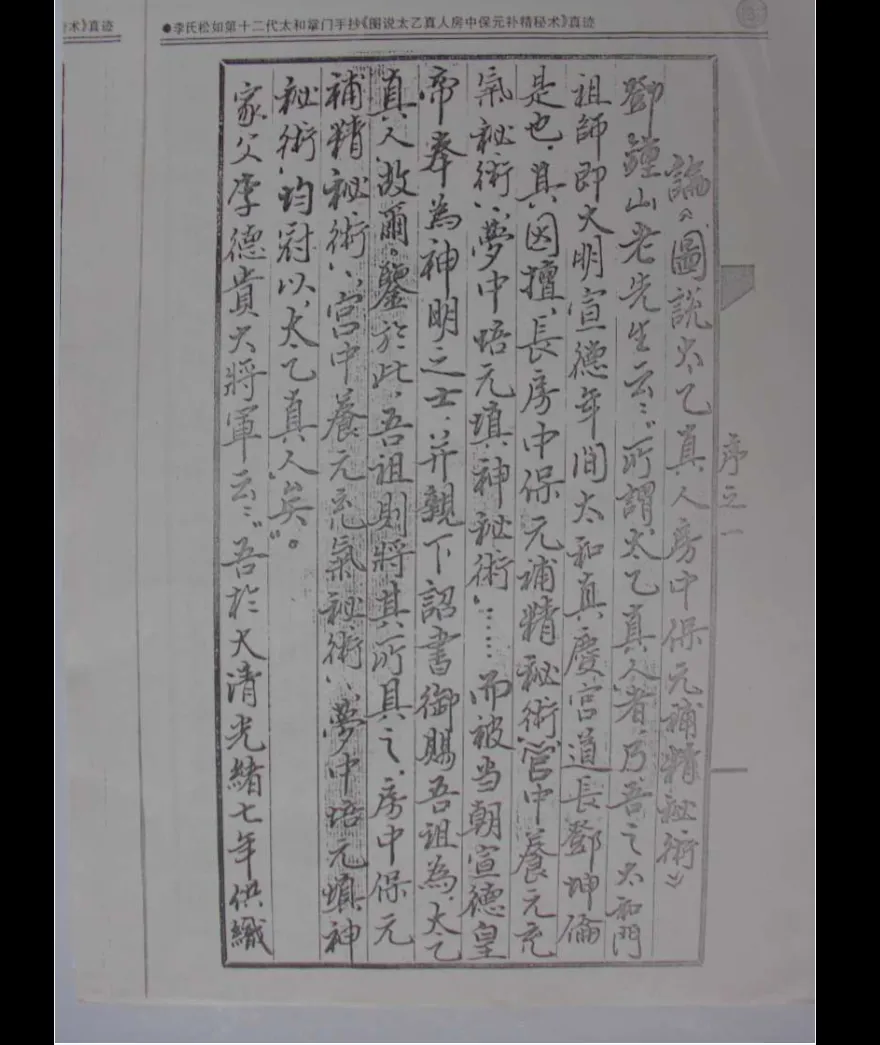 术》真迹
●李氏松如第十二代太和掌门手抄《图说太乙真人房中保元补精秘术》真迹
序之一
論《圖說太乙真人房中保元補精秘術》
鄧鐘山老先生云：“所謂‘太乙真人’者，乃吾之太和門
祖師即大明宣德年間太和真慶宮道長鄧坤倫
是也，其因擅‘長房中保元補精秘術’、‘宮中養元充
氣秘術’、‘夢中悟元填神秘術’……而被当朝宣德皇
帝奉為神明之士，并親下詔書御賜吾祖為‘太乙
真人’故爾。鑒於此，吾祖則將其所具之‘房中保元
補精秘術’、‘宮中養元充氣秘術’、‘夢中悟元填神
秘術’均冠以‘太乙真人’矣”。
家父李德貴大將軍云：“吾於大清光緒七年供職